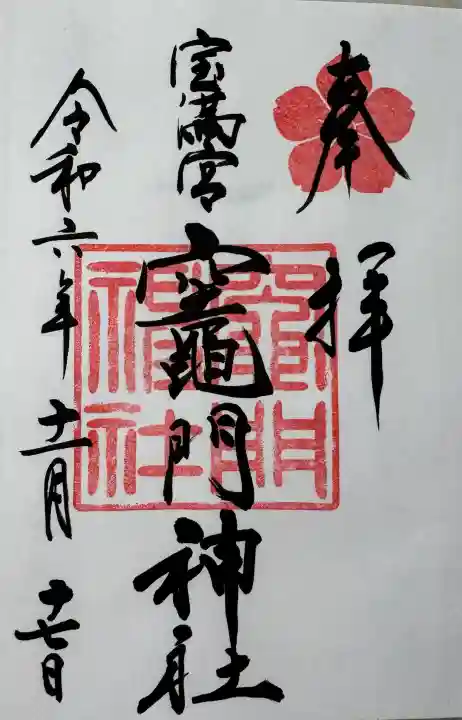 奉拝
宝満宮
竈門神社
令和六年十一月十七日
竈門
神社